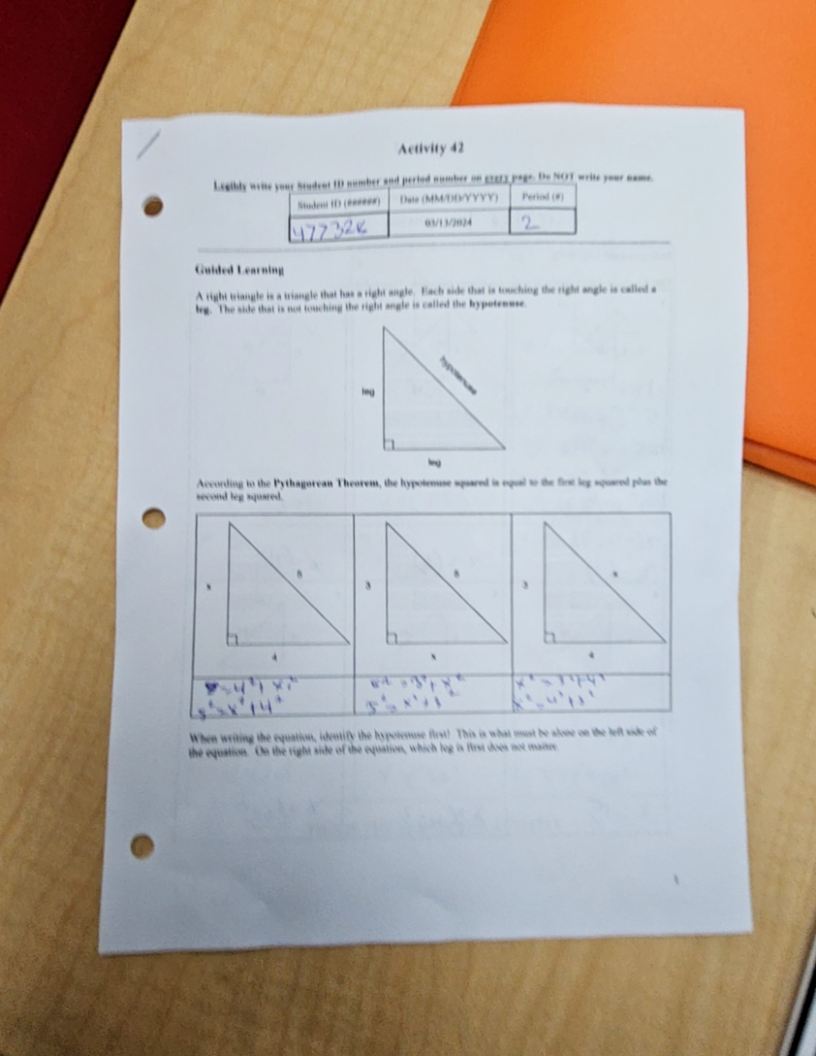 Activity 42
Legibly write your Student ID number and period number on every page. Do NOT write your name.
Student ID (######) Date (MM/DD/YYYY) Period (#)
477328 03/13/2024 2
Guided Learning
A right triangle is a triangle that has a right angle. Each side that is touching the right angle is called a
leg. The side that is not touching the right angle is called the hypotenuse.
hypotenuse
leg
leg
According to the Pythagorean Theorem, the hypotenuse squared is equal to the first leg squared plus the
second leg squared.
x 5 3 5 3 x
4 x 4
=4²+x² 5²=3²+x² x²=3²+4²
5²=x²+4² 5²=x²+3² x²=4²+3²
When writing the equation, identify the hypotenuse first! This is what must be alone on the left side of
the equation. On the right side of the equation, which leg is first does not matter.